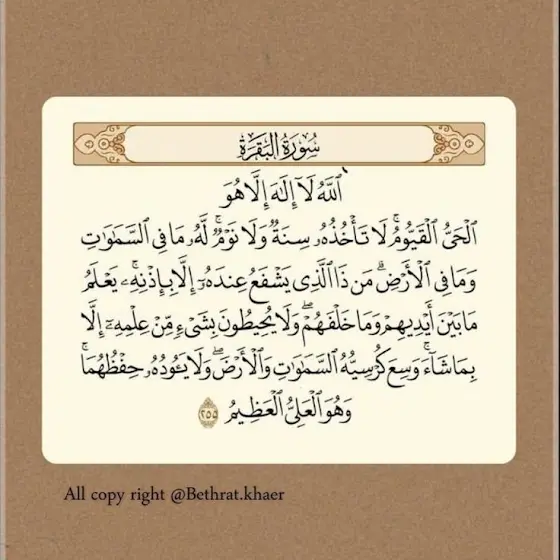 سُورَةُ البَقَرَةِ
ٱللَّهُ لَآ إِلَٰهَ إِلَّا هُوَ
ٱلْحَىُّ ٱلْقَيُّومُ ۚ لَا تَأْخُذُهُۥ سِنَةٌ وَلَا نَوْمٌ ۚ لَّهُۥ مَا فِى ٱلسَّمَٰوَٰتِ
وَمَا فِى ٱلْأَرْضِ ۗ مَن ذَا ٱلَّذِى يَشْفَعُ عِندَهُۥٓ إِلَّا بِإِذْنِهِۦ ۚ يَعْلَمُ
مَا بَيْنَ أَيْدِيهِمْ وَمَا خَلْفَهُمْ ۖ وَلَا يُحِيطُونَ بِشَىْءٍ مِّنْ عِلْمِهِۦٓ إِلَّا
بِمَا شَآءَ ۚ وَسِعَ كُرْسِيُّهُ ٱلسَّمَٰوَٰتِ وَٱلْأَرْضَ ۖ وَلَا يَـُٔودُهُۥ حِفْظُهُمَا ۚ
وَهُوَ ٱلْعَلِىُّ ٱلْعَظِيمُ ٢٥٥
All copy right @Bethrat.khaer